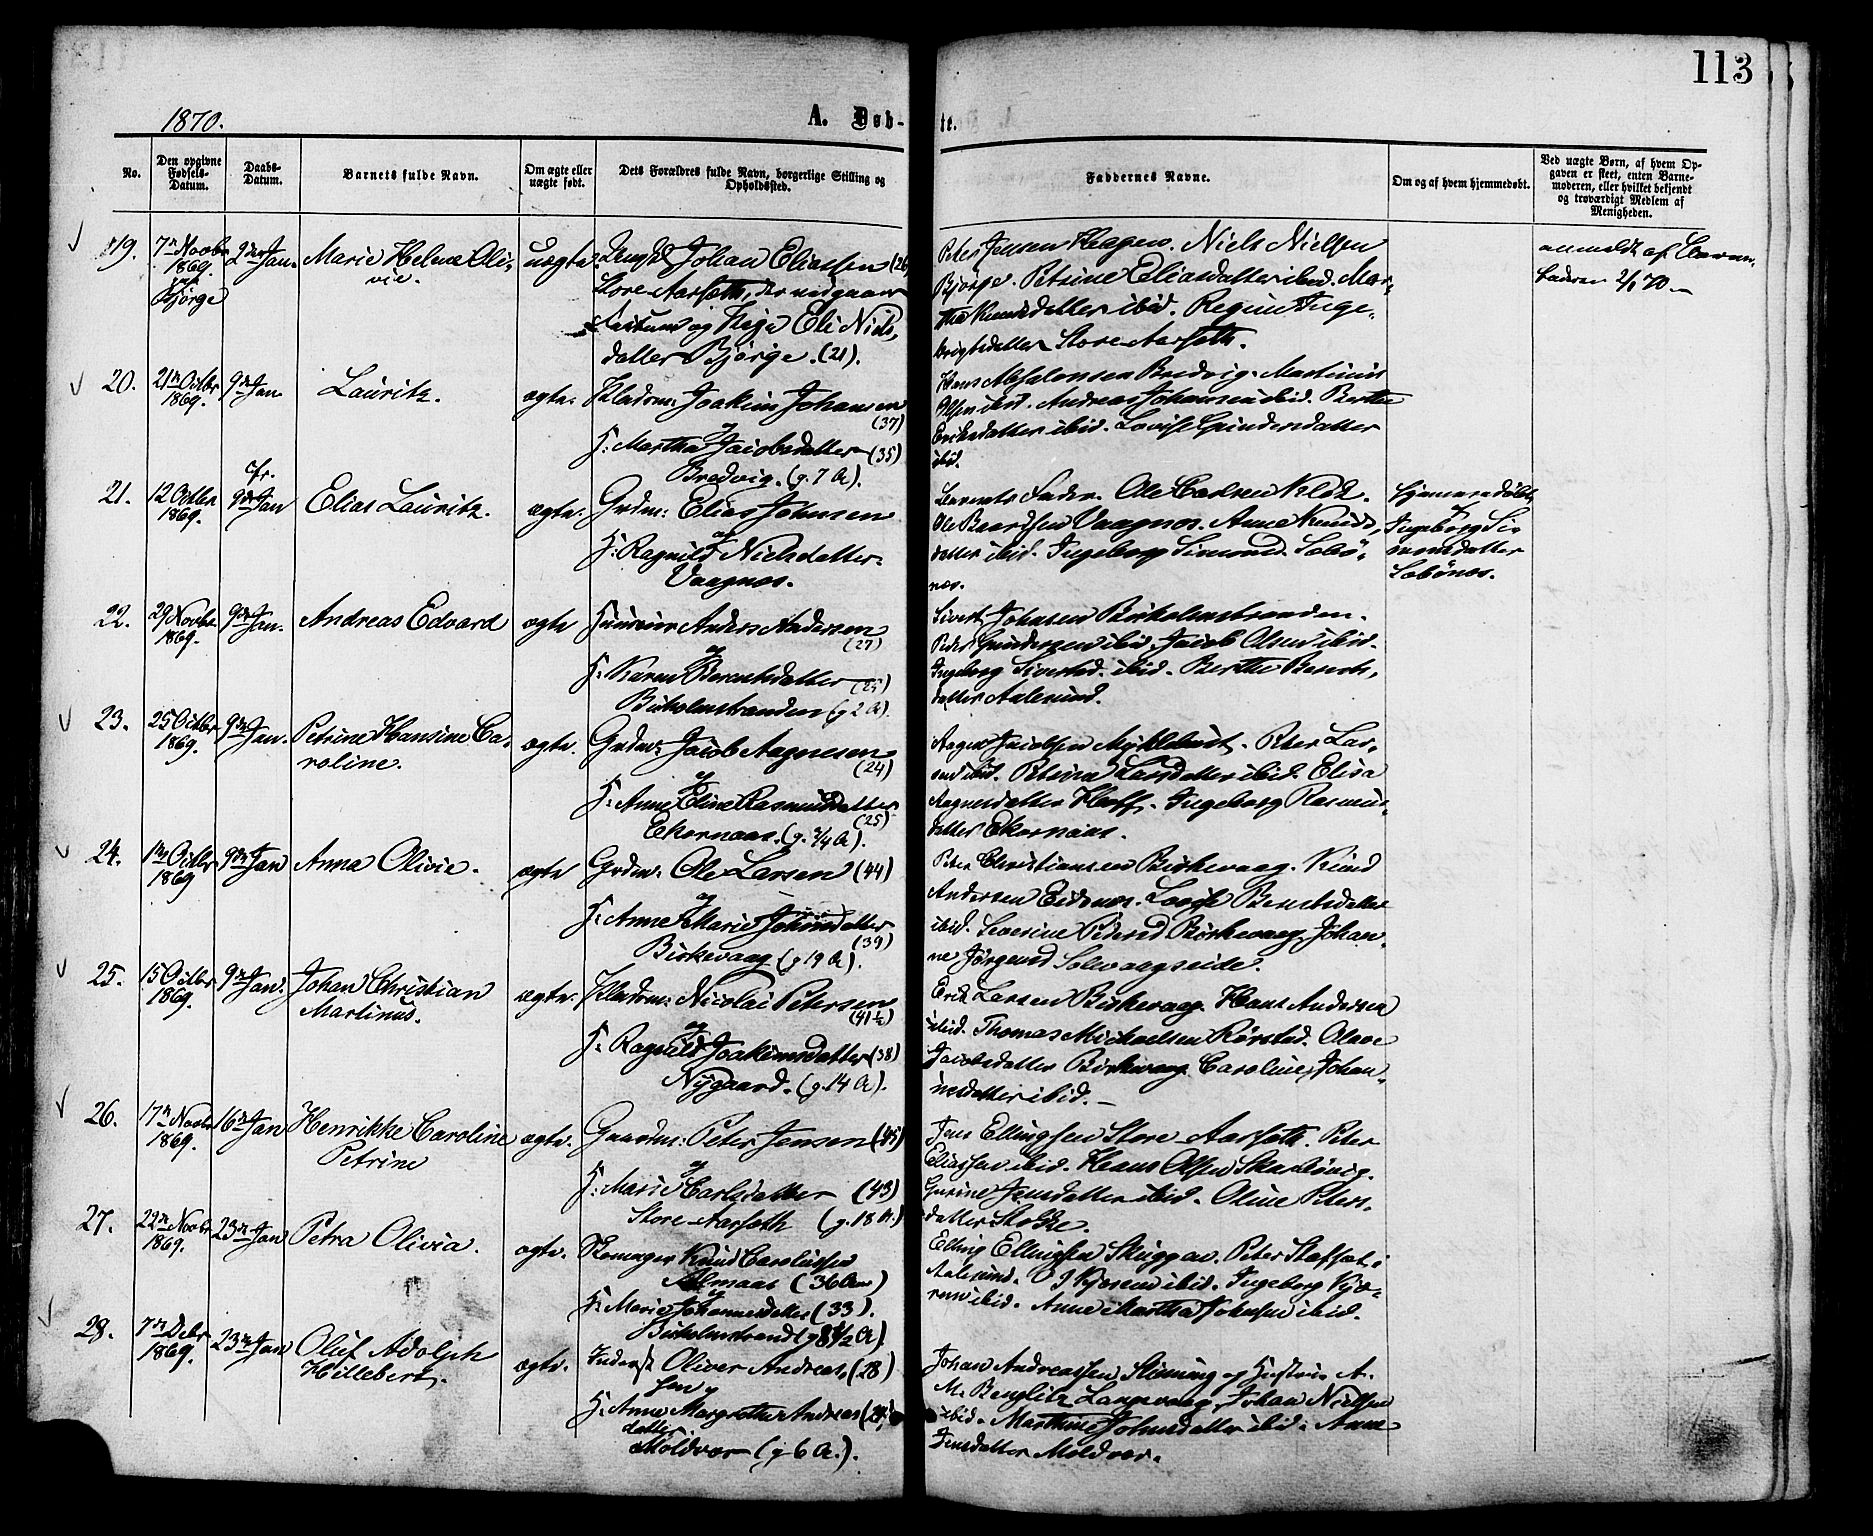 113
1870.
A. Døb-
te.
No.
Den opgivne Fødsels-Datum.
Daabs-Datum.
Barnets fulde Navn.
Om ægte eller uægte født.
Dets Forældres fulde Navn, borgerlige Stilling og Opholdssted.
Faddernes Navne.
Om og af hvem hjemmedøbt.
Ved uægte Børn, af hvem Op-
gaven er skeet, enten Barne-
moderen, eller hvilket bekjendt
og troværdigt Medlem af
Menigheden.
19. 7n Novbr 1869. Bjørge
2den Jan.
Marie Helene Oli-
vie.
uægte.
Ungk. Johan Eliassen (26)
Store-Aarseth, der
og Pige Eli Niels-
datter Bjørge. (21).
Peter Jensen Hagen. Niels Nielsen
Bjørge. Petrine Eliasdatter ibid. Mar-
tha Knudsdatter ibid. Regine Inge-
brigtsdatter Store-Aarseth.
anmeldt af Barne-
faderen 2/1 70.—
20. 21n Octbr 1869.
9n Jan.
Lauritz.
ægte.
Pladsm: Joakim Johansen
(37)
og
H: Martha Jacobsdatter (35)
Bredvig. (g. 7 A).
Hans Absalonsen Bredvig. Martinus
Olsen ibid. Andreas Johansen ibid. Berthe
Eriksdatter ibid. Lovise Gundersdatter
ibid.
21. 12 Octbr 1869.
cfr.
9de Jan
Elias Lauritz.
ægte.
Grdm: Elias Johnsen
og
H: Ragnild Nielsdatter
Vaagnæs.
Barnets Fader. Ole Carlsen
Ole Baardsen Vaagnæs. Anne Knuds-
datter ibid. Ingeborg Simonsd. Sæbø-
næs.
Hjemmedøbt
af
Ingeborg Si-
monsdatter
Sæbønæs.
22. 29 Novbr 1869.
9de Jan.
Andreas Edvard
ægte
Anders Andersen
(27)
og
H: Karen Berentsdatter (25)
Birkholmstranden (g 2 A).
Sivert Johnsen Birkholmstranden.
Peder Gundersen ibid. Jacob Olsen ibid.
Ingeborg Sivertsd. ibid. Berthe Berents-
datter Aalesund.
23. 25 Octbr 1869.
9n Jan.
Petrine Hansine Ca-
roline.
ægte.
Grdm: Jacob Aagnesen
(24)
og
H: Anne Eline Rasmusdatter
(25)
Ekornæs. (g. 3/4 A).
Aagnes Jacobsen Myklebust. Peter Lar-
sen ibid. Petrine Larsdatter ibid. Elisa
Aagnesdatter Hoff. Ingeborg Rasmus-
datter Ekornæs.
24. 1n Octbr 1869
9de Jan
Anna Olivie.
ægte
Grdm: Ole Larsen (44)
og
H: Anne Marie Johnsdatter
(39)
Birkevaag (g 19 A).
Peter Christiansen Birkevaag. Knud
Andersen Eidsnæs. Lovise Berntsdatter
ibid. Severine Pedersd Birkevaag. Johan-
ne Jørgensd Solevaagseide.
25. 15 Octbr 1869.
9n Jan.
Johan Christian
Martinus.
ægte.
Pladsm: Nicolai Petersen
(41 1/2)
og
H: Ragnild Joakimsdatter (38)
Nygaard. (g. 14 A).
Erik Larsen Birkevaag. Hans Andersen
ibid. Thomas Michaelsen Rørstad. Olave
Jacobsdatter Birkevaag. Caroline Johan-
nesdatter ibid.—
26. 17n Novbr 1869.
16n Jan
Henrikke Caroline
Petrine
ægte.
Gaardm: Peter Jensen (45)
og
H: Mari Karlsdatter (43)
Store-Aarseth (g. 18 A.)
Jens Ellingsen Store-Aarseth. Peter
Eliassen ibid. Hans Olsen
Gurine Jensdatter ibid. Oline Peters-
datter Stokke.
27. 22n Novbr 1869.
23n Jan
Petra Olivia.
ægte.
Knud Caroliussen
Almaas (36 Aar)
og
H: Marie Johannesdatter (33).
Birkholmstrand (g 8 1/2 A).
Elling Ellingsen Skuggen. Peter
Aalesund. O J Kjørsem ibid. Ingeborg Kjør-
sem ibid. Anne Martha Johnsen ibid.
28. 7n Decbr 1869.
23n Jan
Oluf Adolph
Hillebert.
ægte.
Inderst Oliver Andreas- (28)
sen og
H: Anne Margrethe Andreas-
datter
Moldvær (g 6 A.).
Johan Andreassen Slinning og Hustru A.
M. Benglitz Langevaag. Johan Nielsen
ibid. Marthine Johnsdatter ibid. Anne
Jensdatter Moldvær.